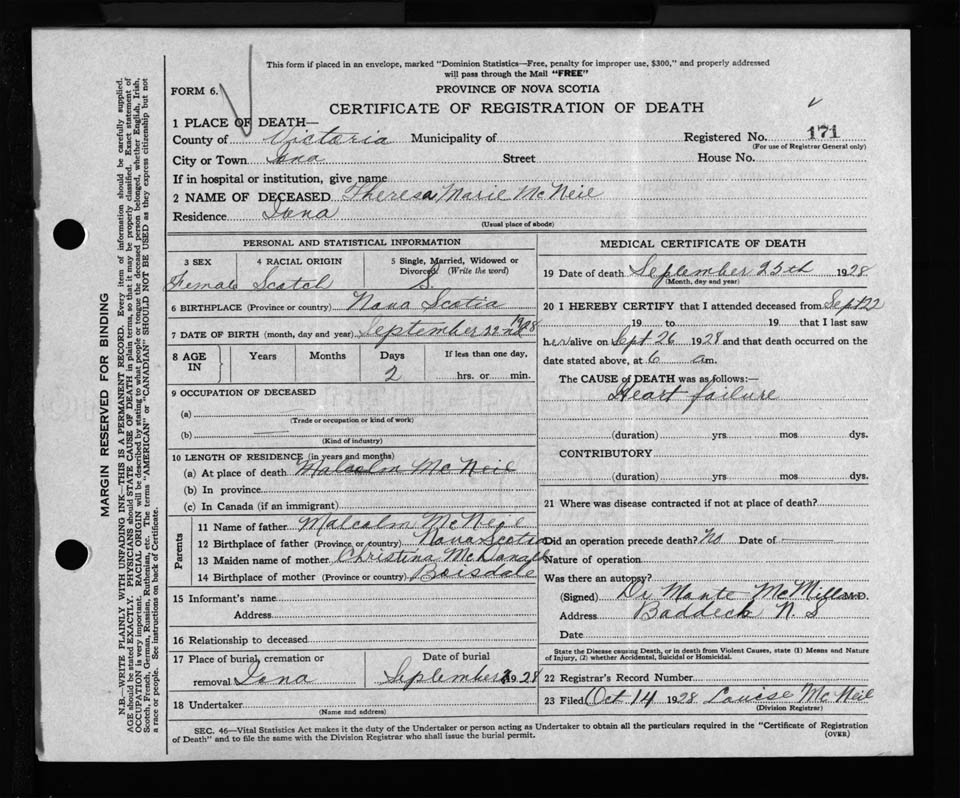 This form if placed in an envelope, marked "Dominion Statistics—Free, penalty for improper use, $300," and properly addressed
will pass through the Mail "FREE"
FORM 6.
PROVINCE OF NOVA SCOTIA
CERTIFICATE OF REGISTRATION OF DEATH
1 PLACE OF DEATH—
County of Victoria Municipality of Registered No. 171
(For use of Registrar General only)
City or Town Iona Street House No.
If in hospital or institution, give name
2 NAME OF DECEASED Theresa Marie McNeil
Residence Iona
(Usual place of abode)
PERSONAL AND STATISTICAL INFORMATION
3 SEX 4 RACIAL ORIGIN 5 Single, Married, Widowed or
Divorced (Write the word)
Female Scotch S.
6 BIRTHPLACE (Province or country) Nova Scotia
7 DATE OF BIRTH (month, day and year) September 22nd 1928
8 AGE IN Years Months Days If less than one day,
2 hrs. or min.
9 OCCUPATION OF DECEASED
(a)
(Trade or occupation or kind of work)
(b)
(Kind of industry)
10 LENGTH OF RESIDENCE (in years and months)
(a) At place of death Malcolm McNeil
(b) In province
(c) In Canada (if an immigrant)
Parents
11 Name of father Malcolm McNeil
12 Birthplace of father (Province or country) Nova Scotia
13 Maiden name of mother Christina
14 Birthplace of mother (Province or country) Boisdale
15 Informant's name
Address
16 Relationship to deceased
17 Place of burial, cremation or Date of burial
removal Iona September 1928
18 Undertaker
(Name and address)
MEDICAL CERTIFICATE OF DEATH
19 Date of death September 25th 1928
(Month, day and year)
20 I HEREBY CERTIFY that I attended deceased from Sept 22
19 to 19 that I last saw
her alive on Sept 26 1928 and that death occurred on the
date stated above, at 6 a.m.
The CAUSE of DEATH was as follows:—
Heart failure
(duration) yrs mos dys.
CONTRIBUTORY
(duration) yrs mos dys.
21 Where was disease contracted if not at place of death?
Did an operation precede death? No Date of
Nature of operation
Was there an autopsy?
(Signed) Dr McMillan M.D.
Address Baddeck N. S
Date
State the Disease causing Death, or in death from Violent Causes, state (1) Means and Nature
of Injury, (2) whether Accidental, Suicidal or Homicidal.
22 Registrar's Record Number
23 Filed Oct 14 1928 Louise McNeil
(Division Registrar)
SEC. 46—Vital Statistics Act makes it the duty of the Undertaker or person acting as Undertaker to obtain all the particulars required in the "Certificate of Registration
of Death" and to file the same with the Division Registrar who shall issue the burial permit.
(OVER)
MARGIN RESERVED FOR BINDING
N.B.—WRITE PLAINLY WITH UNFADING INK—THIS IS A PERMANENT RECORD. Every item of information should be carefully supplied.
AGE should be stated EXACTLY. PHYSICIANS should STATE CAUSE OF DEATH in plain terms, so that it may be properly classified. Exact statement of
OCCUPATION is very important. RACIAL ORIGIN will be described by stating to what people or tongue the deceased person belonged, whether English, Irish,
Scotch, French, German, Russian, Ruthenian, etc. The terms "AMERICAN" or "CANADIAN" SHOULD NOT BE USED as they express citizenship but not
a race or people. See instructions on back of Certificate.